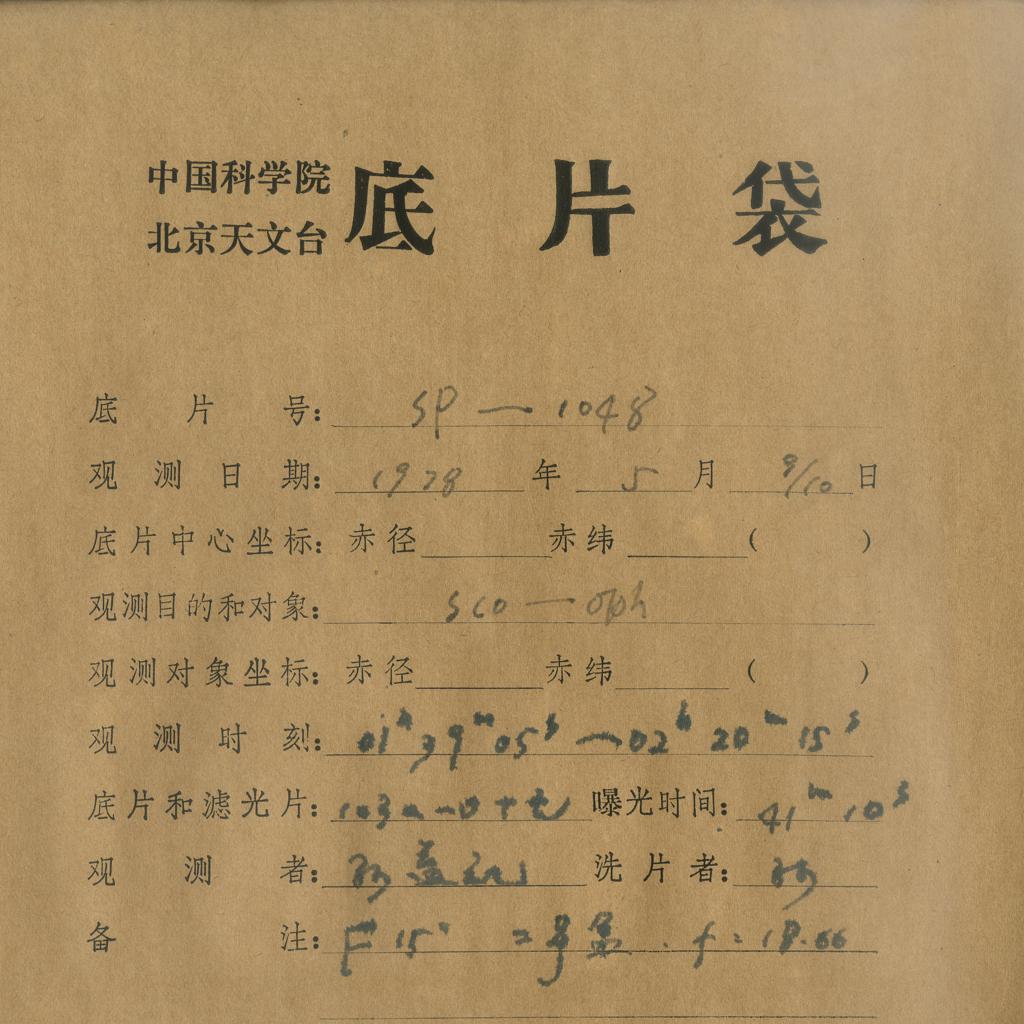 中国科学院
北京天文台
底片袋
底片号: SP — 1048
观测日期: 1978 年 5 月 9/10 日
底片中心坐标: 赤径 赤纬 ( )
观测目的和对象: Sco — Oph
观测对象坐标: 赤径 赤纬 ( )
观测时刻: 01h 39m 05s — 02h 20m 15s
底片和滤光片: 103a-O + 无 曝光时间: 41m 10s
观测者: 洗片者:
备注: F 15' 二号 f = 18.66